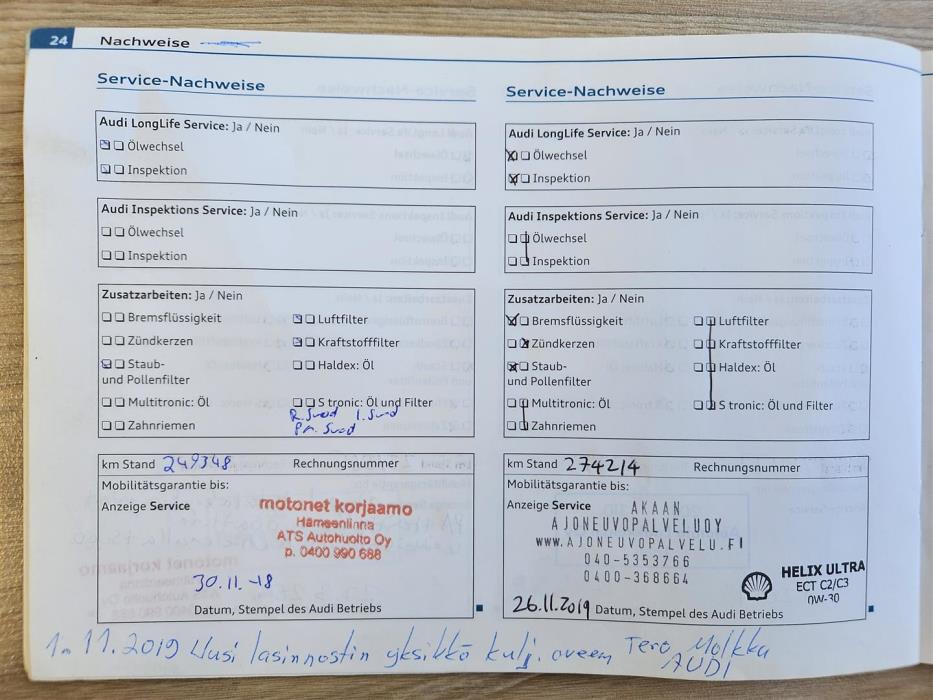 24 Nachweise
Service-Nachweise
Audi LongLife Service: Ja / Nein
Ölwechsel
Inspektion
Audi Inspektions Service: Ja / Nein
Ölwechsel
Inspektion
Zusatzarbeiten: Ja / Nein
Bremsflüssigkeit
Luftfilter
Zündkerzen
Kraftstofffilter
Staub-
und Pollenfilter
Haldex: Öl
Multitronic: Öl
S tronic: Öl und Filter
Zahnriemen
km Stand 249348 Rechnungsnummer
Mobilitätsgarantie bis:
Anzeige Service
motonet korjaamo
Hämeenlinna
ATS Autohuolto Oy
p. 0400 990 688
30.11.-18
Datum, Stempel des Audi Betriebs
Service-Nachweise
Audi LongLife Service: Ja / Nein
Ölwechsel
Inspektion
Audi Inspektions Service: Ja / Nein
Ölwechsel
Inspektion
Zusatzarbeiten: Ja / Nein
Bremsflüssigkeit
Luftfilter
Zündkerzen
Kraftstofffilter
Staub-
und Pollenfilter
Haldex: Öl
Multitronic: Öl
S tronic: Öl und Filter
Zahnriemen
km Stand 274214 Rechnungsnummer
Mobilitätsgarantie bis:
Anzeige Service
AKAAN
AJONEUVOPALVELUOY
WWW.AJONEUVOPALVELU.FI
040-5353766
0400-368664
HELIX ULTRA
ECT C2/C3
0W-30
26.11.2019 Datum, Stempel des Audi Betriebs
1.11.2019 Uusi lasinnostin yksikkö kulj. oveen Tero Molkka
AUDI